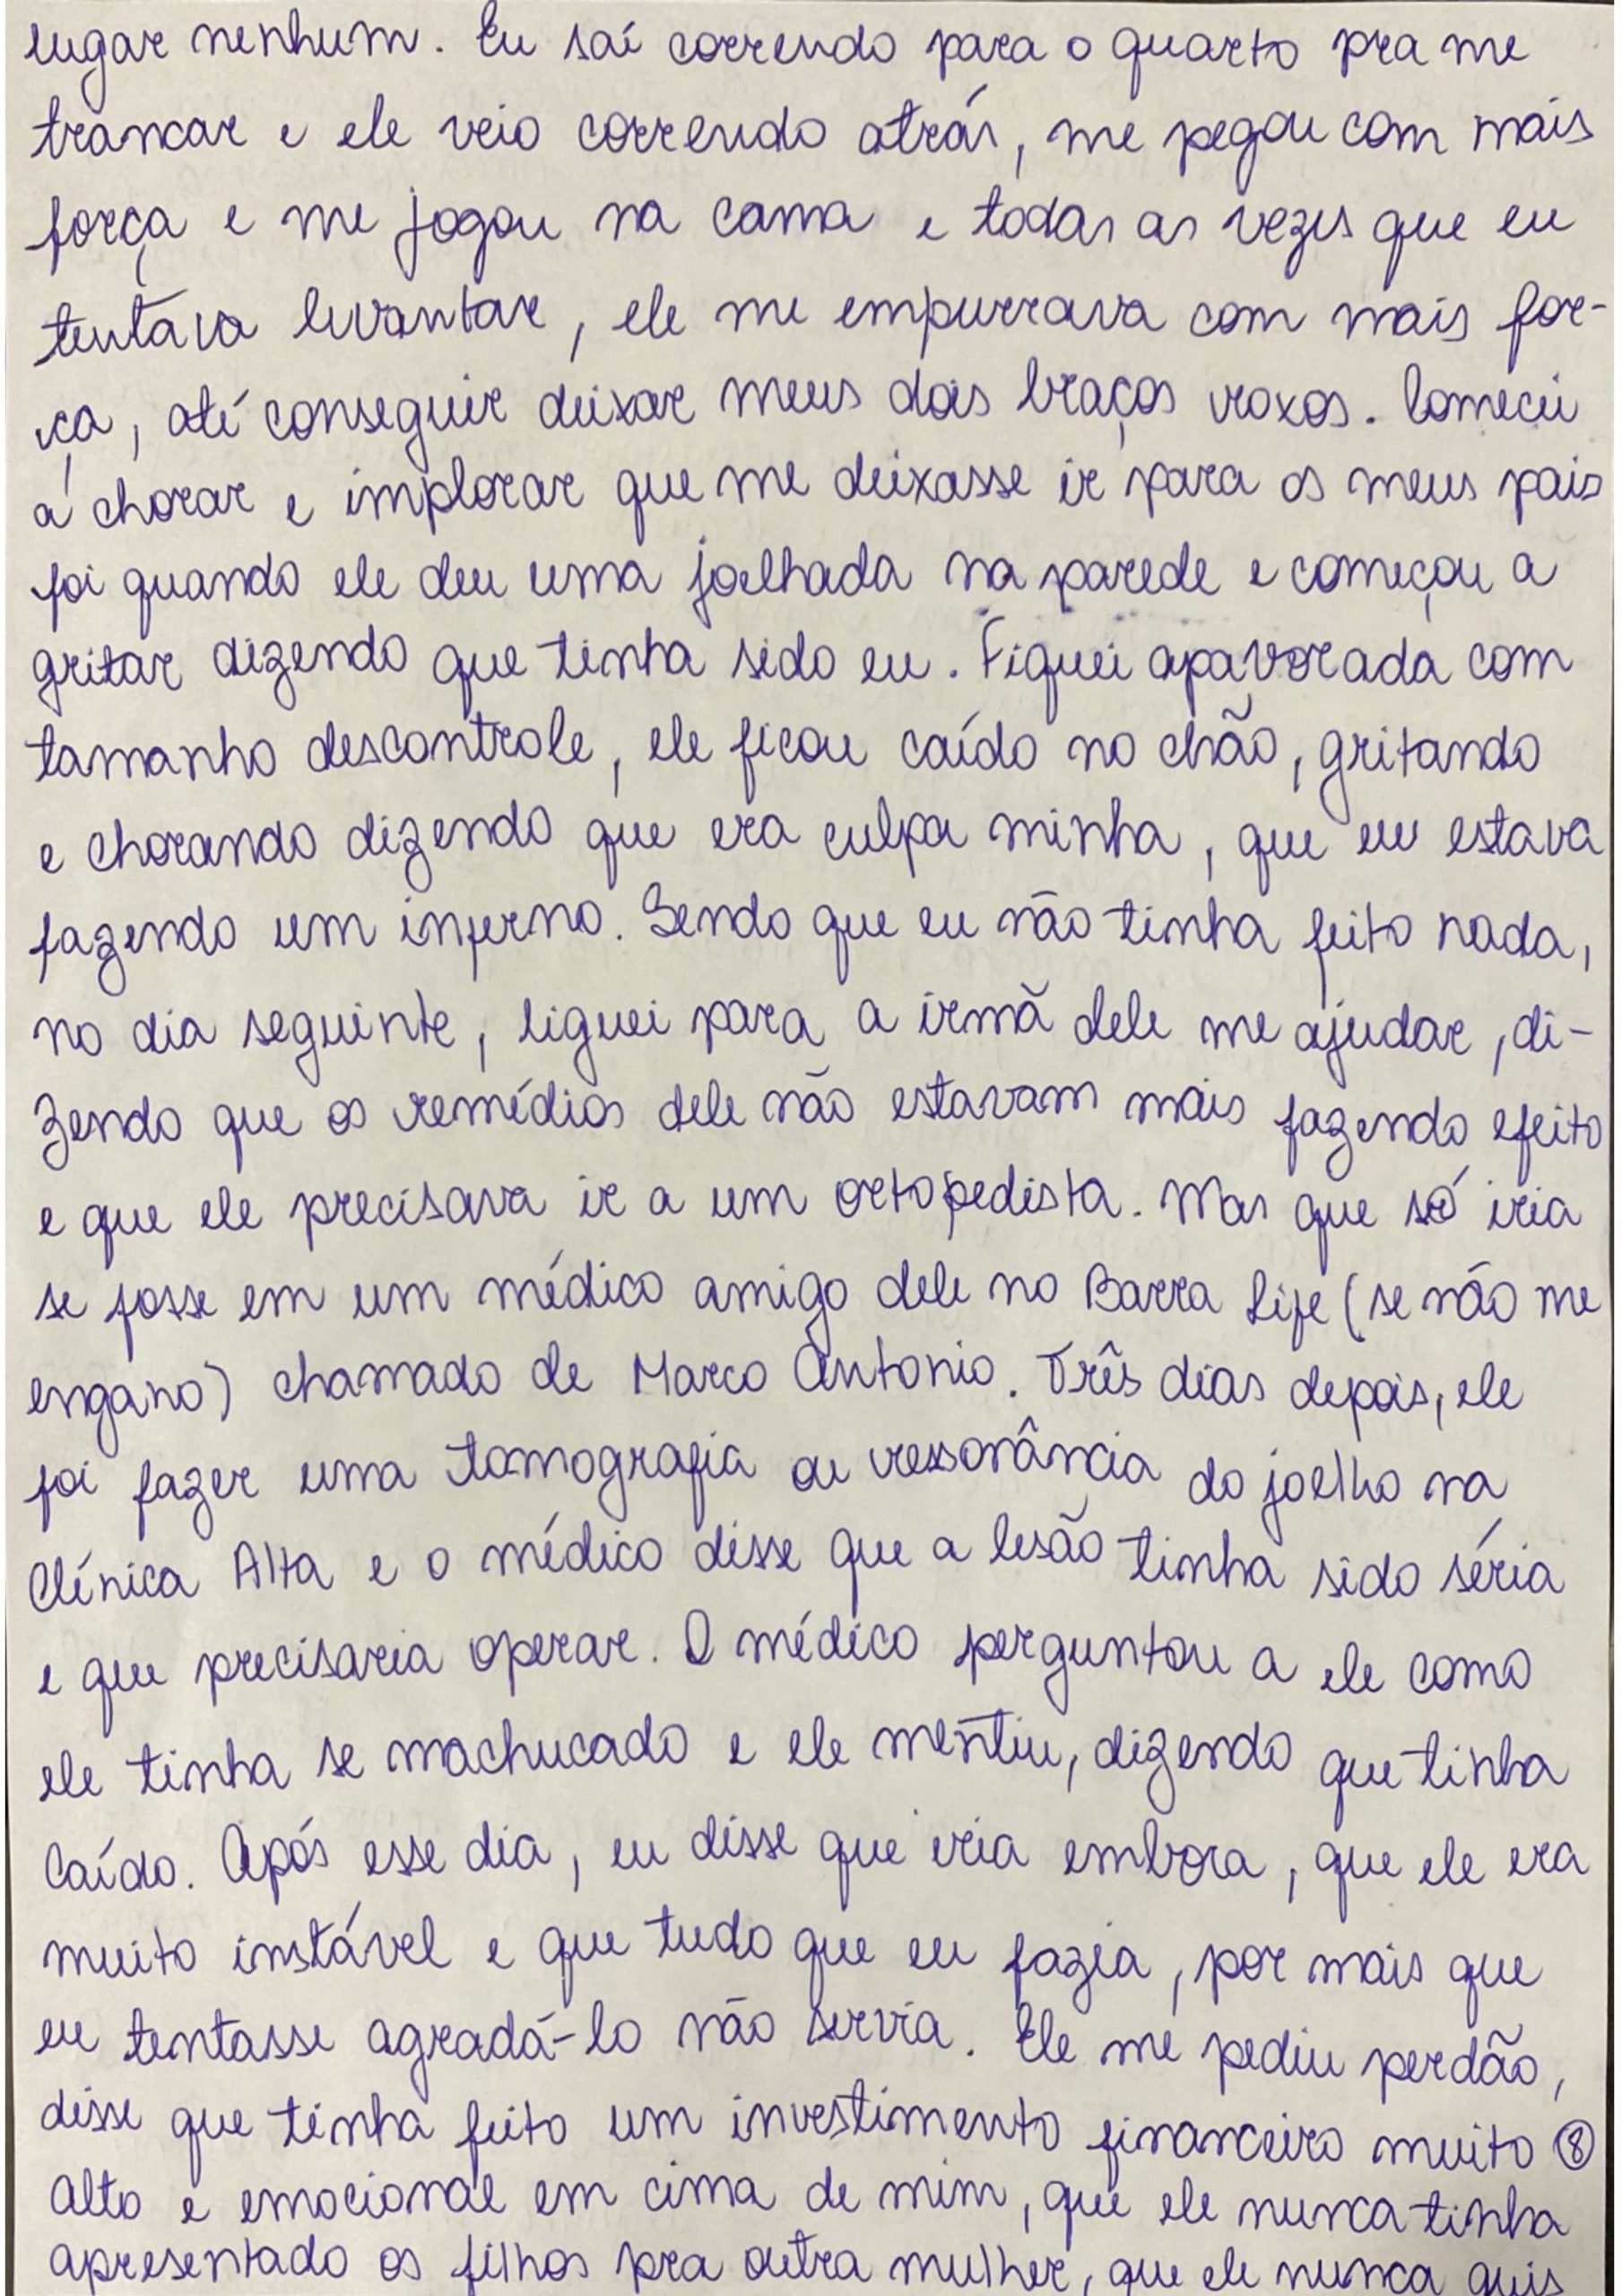 lugar nenhum. Eu saí correndo para o quarto pra me
trancar e ele veio correndo atrás, me pegou com mais
força e me jogou na cama e todas as vezes que eu
tentava levantar, ele me empurrava com mais for-
ça, até conseguir deixar meus dois braços roxos. Comecei
a chorar e implorar que me deixasse ir para os meus pais
foi quando ele deu uma joelhada na parede e começou a
gritar dizendo que tinha sido eu. Fiquei apavorada com
tamanho descontrole, ele ficou caído no chão, gritando
e chorando dizendo que era culpa minha, que eu estava
fazendo um inferno. Sendo que eu não tinha feito nada,
no dia seguinte, liguei para a irmã dele me ajudar, di-
zendo que os remédios dele não estavam mais fazendo efeito
e que ele precisava ir a um ortopedista. Mas que só iria
se fosse em um médico amigo dele no Barra Life (se não me
engano) chamado de Marco Antonio. Três dias depois, ele
foi fazer uma tomografia ou ressonância do joelho na
Clínica Alta e o médico disse que a lesão tinha sido séria
e que precisaria operar. O médico perguntou a ele como
ele tinha se machucado e ele mentiu, dizendo que tinha
caído. Após esse dia, eu disse que iria embora, que ele era
muito instável e que tudo que eu fazia, por mais que
eu tentasse agradá-lo não servia. Ele me pediu perdão,
disse que tinha feito um investimento financeiro muito 8
alto e emocional em cima de mim, que ele nunca tinha
apresentado os filhos pra outra mulher, que ele nunca quis